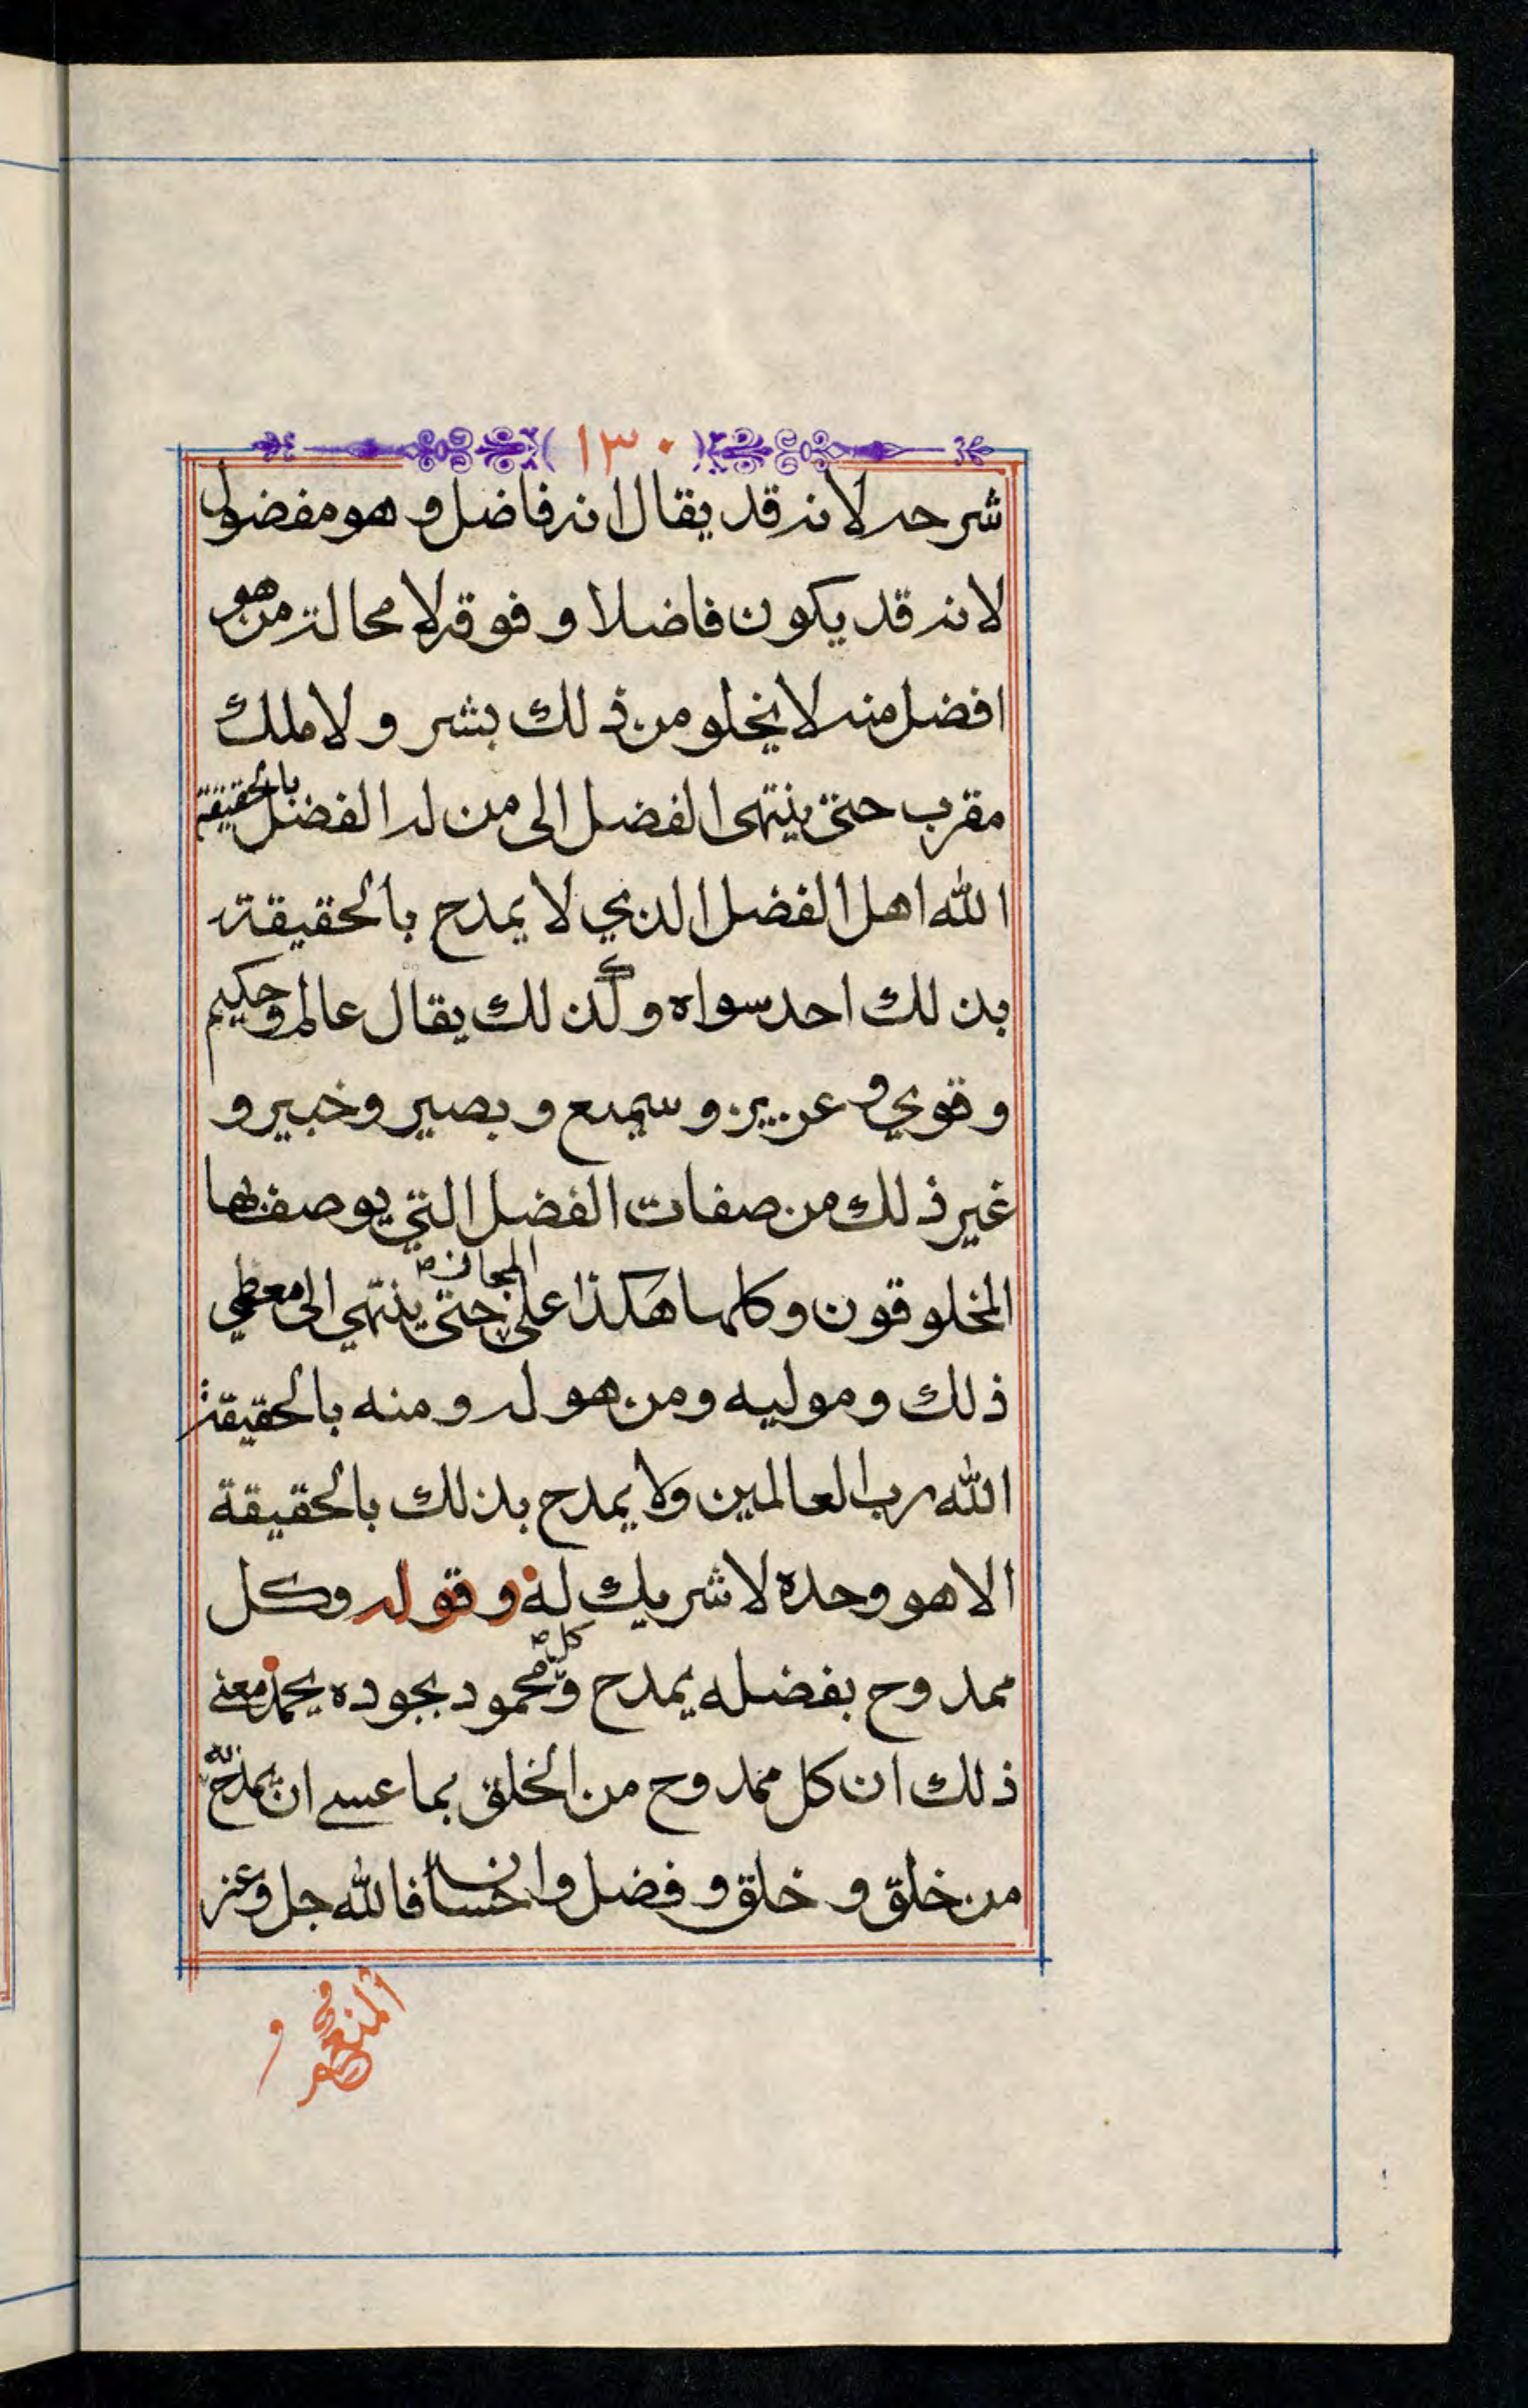 ١٣٠
شرحه لانه قد يقال انه فاضل و هو مفضول
لانه قد يكون فاضلا و فوقه لا محالة من هو
افضل منه لا يخلو من ذلك بشر و لا ملك
مقرب حتى ينتهى الفضل الى من له الفضل بالحقيقة
الله اهل الفضل الذي لا يمدح بالحقيقة
بذلك احد سواه و كذلك يقال عالم و حكيم
و قوي و عزيز و سميع و بصير و خبير و
غير ذلك من صفات الفضل التي يوصف بها
المخلوقون و كلها هكذا على المجاز حتى ينتهي الى معطي
ذلك و موليه و من هو له و منه بالحقيقة
الله رب العالمين و لا يمدح بذلك بالحقيقة
الا هو وحده لا شريك له و قوله و كل
ممدوح بفضله يمدح و كل محمود بجوده يحمد معنى
ذلك ان كل ممدوح من الخلق بما عسى ان يمدح به
من خلق و خلق و فضل و احسان فالله جل و عز
المنعم و